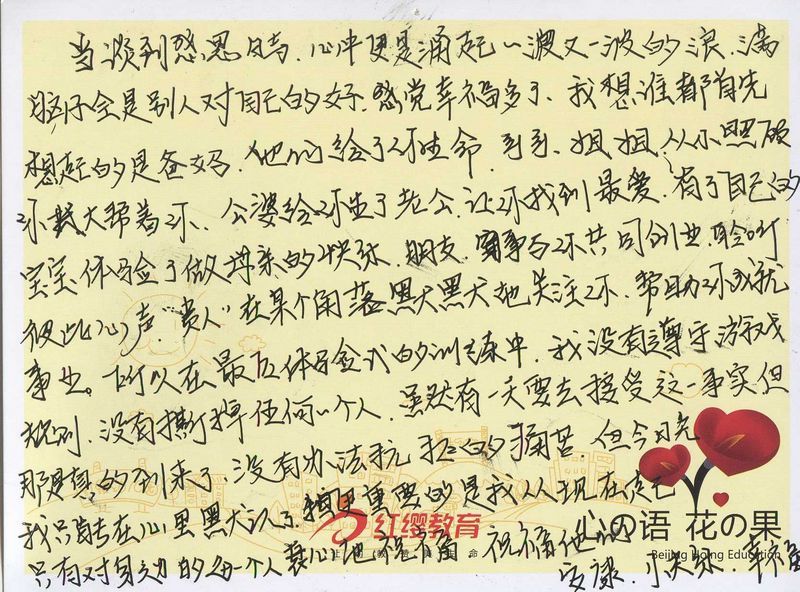 当谈到感恩时、心中更是涌起一波又一波的浪、满
脑子全是别人对自己的好、感觉幸福多了、我想谁都首先
想起的是爸妈、他们给了我生命、哥哥、姐姐、从小照顾
我大帮着我、公婆给我生了老公、让我找到最爱、有了自己的
宝宝体验了做母亲的快乐、朋友、同事与我共同创业、聆听
彼此心声“贵人”在某个角落默默地关注我、帮助我成就
事业。所以在最后体验式的训练中、我没有遵守游戏
规则、没有撕掉任何一个人、虽然有一天要去接受这一事实但
那是真的到来了、没有办法抗拒的痛苦、但今日先
我只能在心里默认了、更重要的是我从现在起
红缨教育 心の语 花の果
Beijing Hoing Education
只有对身边的每一个人衷心地祝福、祝福他们
安康、快乐、幸福